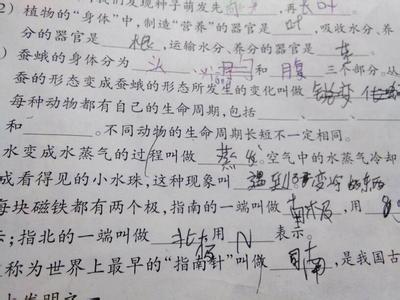 我们发现种子萌发先 ，再长叶
2) 植物的“身体”中，制造“营养”的器官是 叶 ，吸收水分、养
分的器官是 根 ，运输水分、养分的器官是 茎
) 蚕蛾的身体分为 头 、 胸 和 腹 三个部分。从
蚕的形态变成蚕蛾的形态所发生的变化叫做
每种动物都有自己的生命周期，包括 、 、
和 。不同动物的生命周期长短不一定相同。
水变成水蒸气的过程叫做 蒸发 。空气中的水蒸气冷却
成看得见的小水珠，这种现象叫 遇到 变冷的东西
每块磁铁都有两个极，指南的一端叫做 南极 ，用
示；指北的一端叫做 北极 用 N 表示。
称为世界上最早的“指南针”叫做 司南 ，是我国古